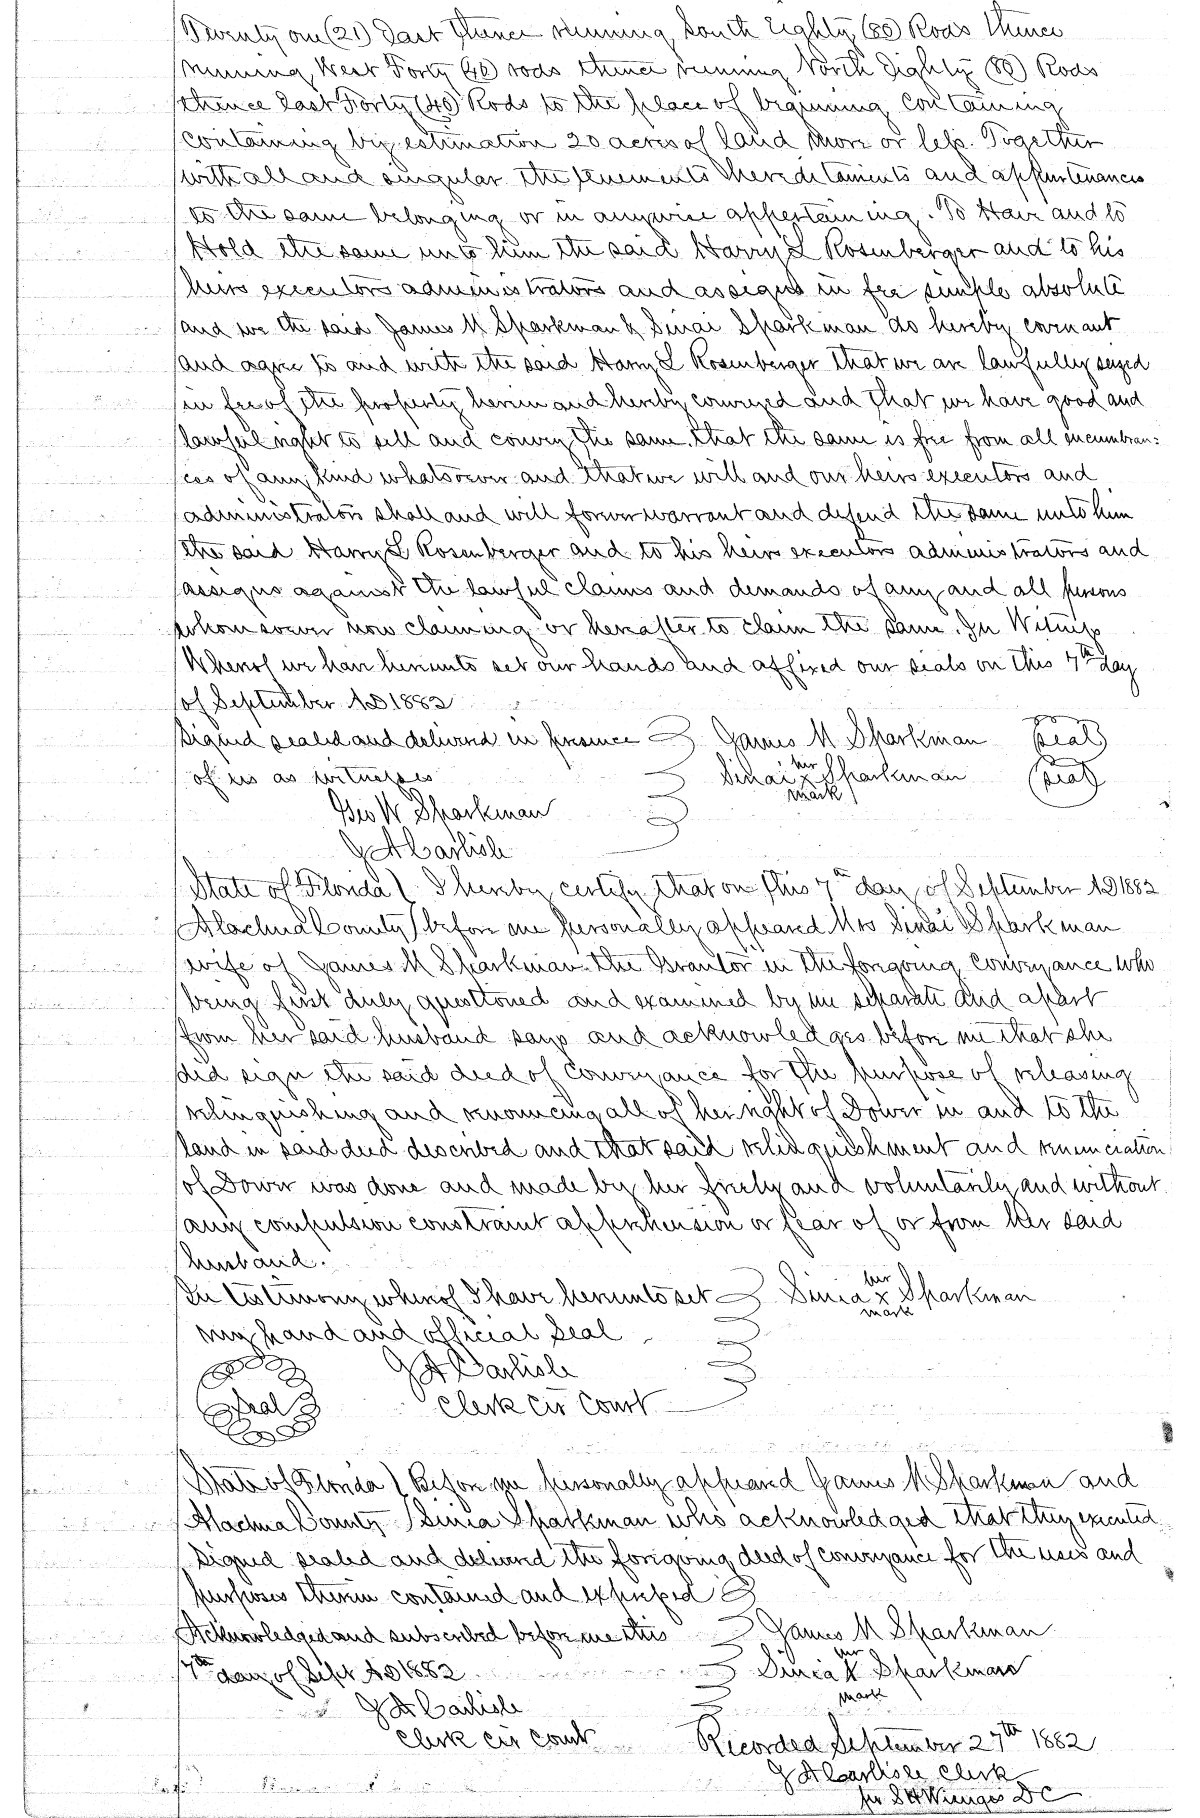 Twenty one (21) East thence running South Eighty (80) Rods thence
running West Forty (40) rods thence running North Eighty (80) Rods
thence East Forty (40) Rods to the place of beginning containing
containing by estimation 20 acres of land more or less. Together
with all and singular the tenements hereditaments and appurtenances
to the same belonging or in anywise appertaining. To Have and to
Hold the same unto him the said Harry L Rosenberger and to his
heirs executors administrators and assigns in fee simple absolute
and we the said James M Sparkman & Sinai Sparkman do hereby covenant
and agree to and with the said Harry L Rosenberger that we are lawfully seized
in fee of the property herein and hereby conveyed and that we have good and
lawful right to sell and convey the same. that the same is free from all encumbran=
ces of any kind whatsoever and that we will and our heirs executors and
administrators shall and will forever warrant and defend the same unto him
the said Harry L Rosenberger and to his heirs executors administrators and
assigns against the lawful claims and demands of any and all persons
whomsoever now claiming or hereafter to claim the same. In Witness
Whereof we have hereunto set our hands and affixed our seals on this 7th day
of September AD 1882
Signed sealed and delivered in presence James M Sparkman Seal
of us as witnesses Sinai her x mark Sparkman Seal
Geo W Sparkman
J A Carlisle
State of Florida ( I hereby certify that on this 7th day of September AD 1882
Alachua County ) before me personally appeared Mrs Sinai Sparkman
wife of James M Sparkman the Grantor in the foregoing conveyance who
being first duly questioned and examined by me separate and apart
from her said husband says and acknowledges before me that she
did sign the said deed of conveyance for the purpose of releasing
relinquishing and renouncing all of her right of Dower in and to the
land in said deed described and that said relinquishment and renunciation
of Dower was done and made by her freely and voluntarily and without
any compulsion constraint apprehension or fear of or from her said
husband.
In testimony whereof I have hereunto set Sinia her x mark Sparkman
my hand and official Seal
J A Carlisle
Seal Clerk Cir Court
State of Florida ( Before me personally appeared James M Sparkman and
Alachua County ( Sinia Sparkman who acknowledged that they executed
signed sealed and delivered the foregoing deed of conveyance for the uses and
purposes therein contained and expressed
Acknowledged and subscribed before me this James M Sparkman
7th day of Sept AD 1882 Sinia her X mark Sparkman
J A Carlisle
Clerk Cir Court Recorded September 27th 1882
J A Carlisle Clerk
per S H Wienges DC